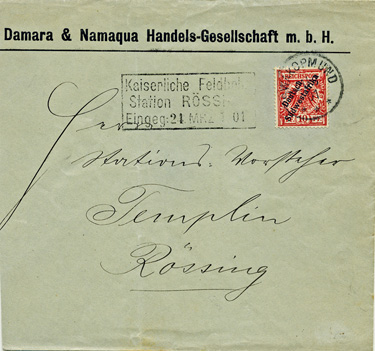 Damara & Namaqua Handels-Gesellschaft m. b. H.
Kaiserliche Feldb
Station RÖSSI
Eingeg: 24 MRZ 1 01
REICHSPOST
Deutsch-
Südwestafrika
10
KOPMUND
Herrn
Stations-Vorsteher
Templin
Rössing